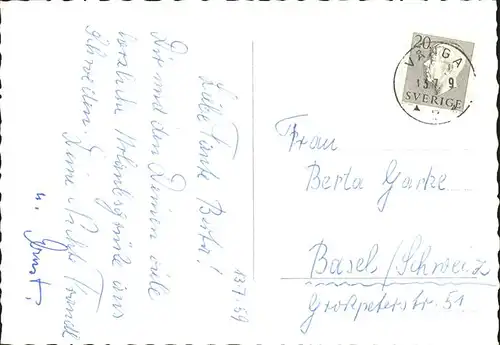 13.7.59
Liebe Tante Berta!
Dir und den Deinen viele
herzliche Urlaubsgrüsse aus
Schweden. Deine Nichte Traudl
u. Ernst.
20
VÅNGA
13.7.59
SVERIGE
Frau
Berta Garke
Basel/Schweiz
Großpeterstr. 51